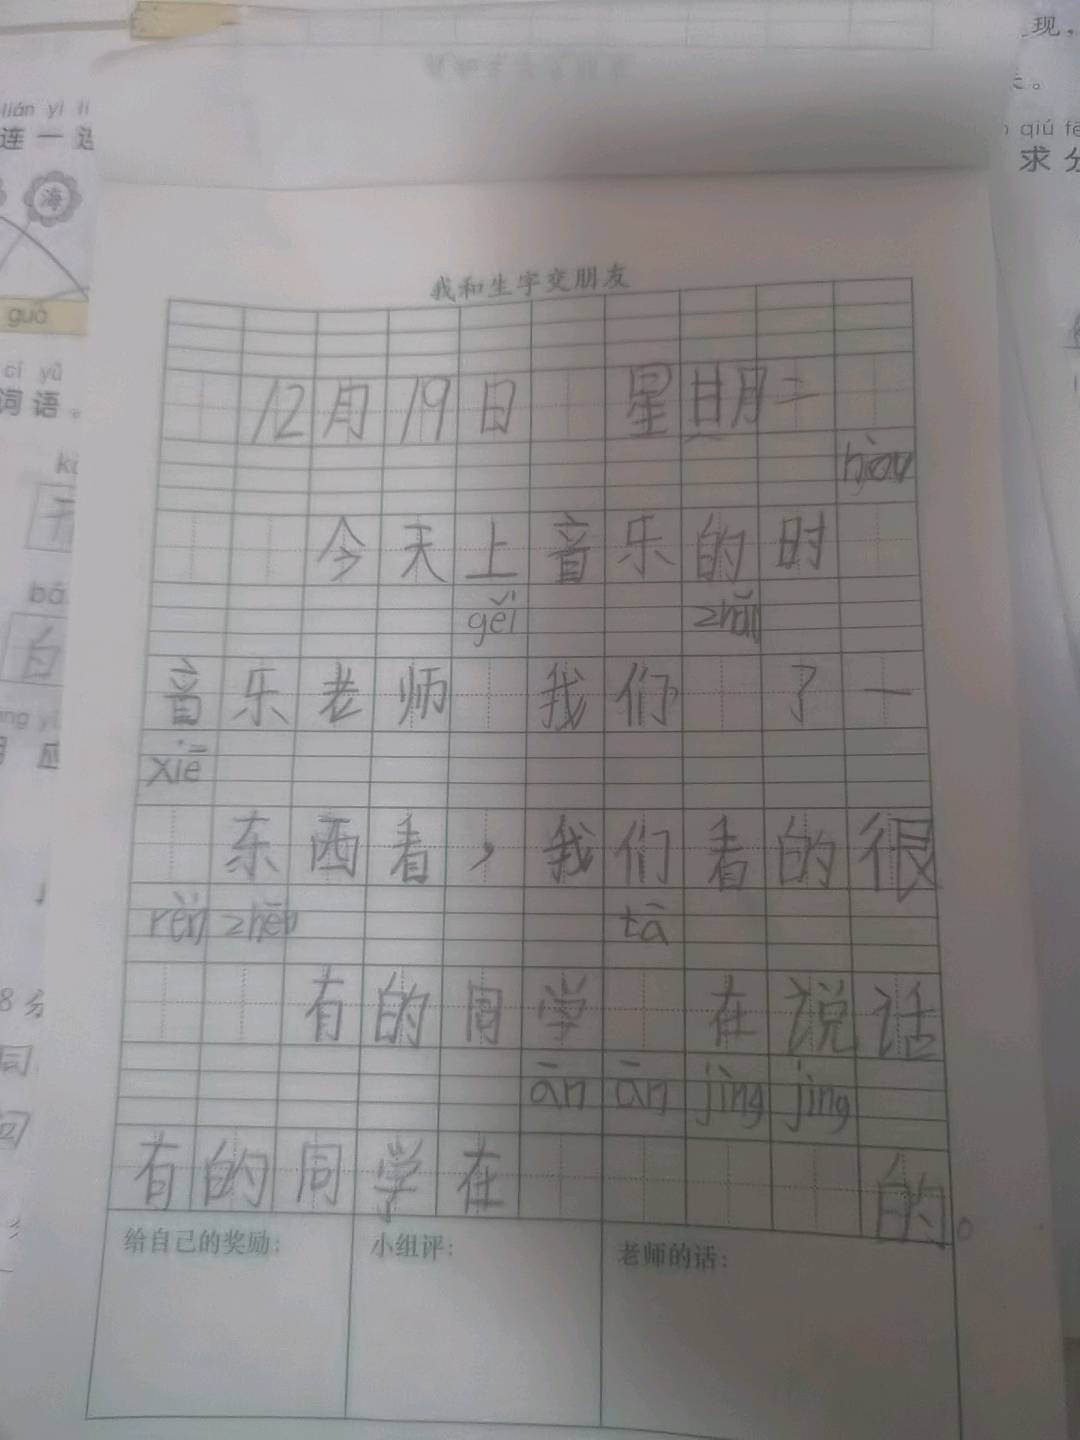 现，
lián yì li
连 一 连
海
qiú fē
求 分
guò
cí yǔ
词 语 。
bá
白
我和生字交朋友
12月19日 星期二
hòu
今天上音乐的时
gěi zhǎo
音乐老师 我们 了一
xiē
东西看，我们看的很
rèn zhēn tā
有的同学 在说话
ān ān jìng jìng
有的同学在 的。
给自己的奖励： 小组评： 老师的话：
8分
同